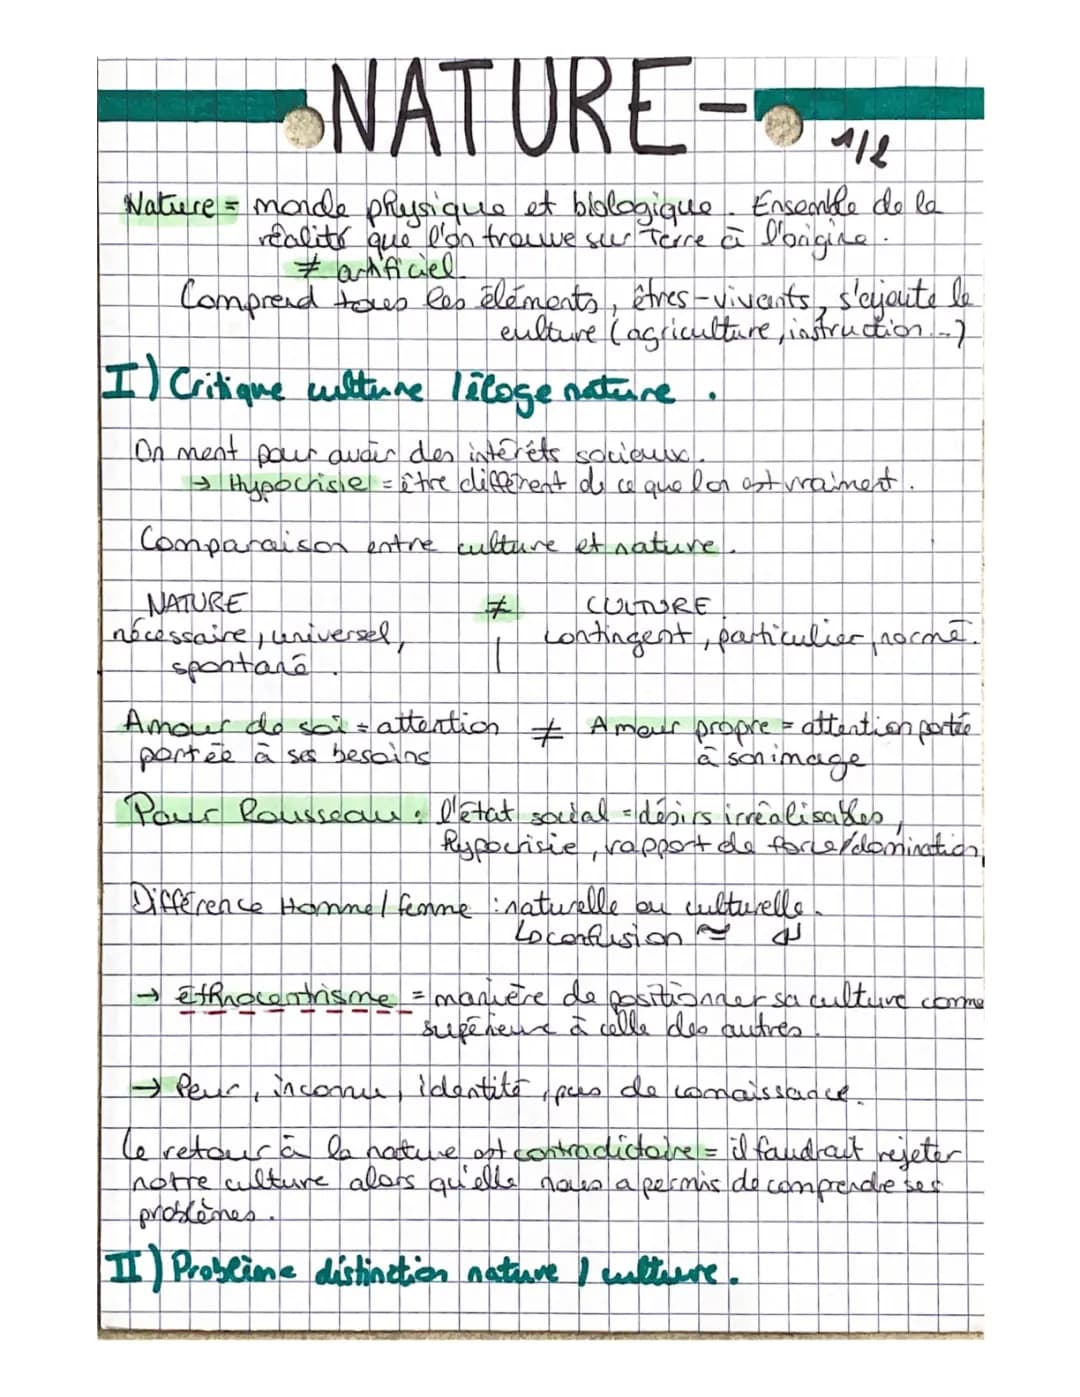 NATURE -
1/2
Nature = monde physique et biologique. Ensemble de la
réalité que l'on trouve sur Terre à l'origine.
≠ artificiel.
Comprend tous les éléments, êtres-vivants, s'ajoute la
culture (agriculture, instruction...)
I) Critique culture / éloge nature.
On ment pour avoir des intérêts sociaux.
→ Hypocrisie = être différent de ce que l'on est vraiment.
Comparaison entre culture et nature.
NATURE ≠ CULTURE
nécessaire, universel, | contingent, particulier, normé.
spontané.
Amour de soi = attention ≠ Amour propre = attention portée
portée à ses besoins à son image
Pour Rousseau : l'état social = désirs irréalisables,
hypocrisie, rapport de force/domination
Différence Homme/femme : naturelle ou culturelle.
↳ confusion ≈ ↲
→ Ethnocentrisme = manière de positionner sa culture comme
supérieure à celle des autres.
→ Peur, inconnu, identité, pas de connaissance.
Le retour à la nature est contradictoire = il faudrait rejeter
notre culture alors qu'elle nous a permis de comprendre ses
problèmes.
II) Problème distinction nature / culture.